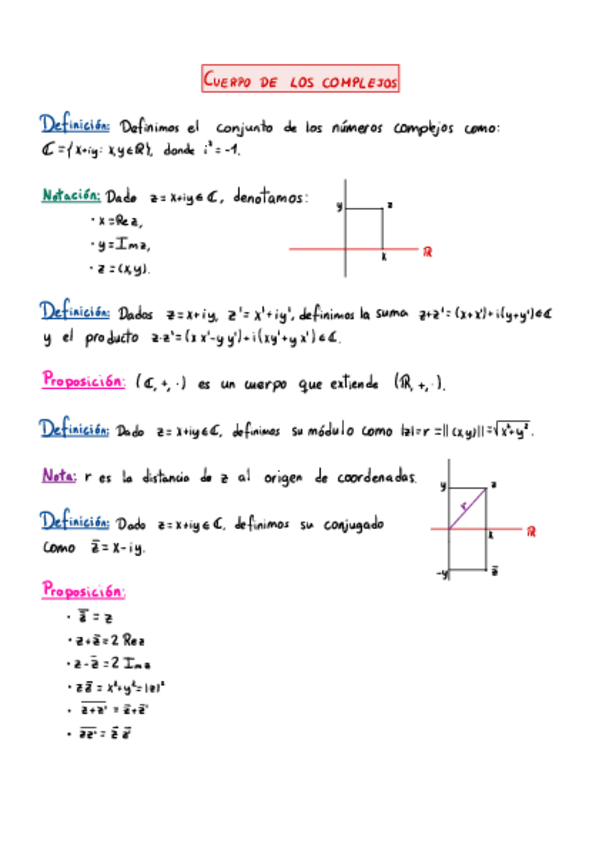 CUERPO DE LOS COMPLEJOS
Definición: Definimos el conjunto de los números complejos como:
ℂ = {x+iy: x,y∈ℝ}, donde i² = -1.
Notación: Dado z = x+iy ∈ ℂ, denotamos:
· x = Re z,
· y = Im z,
· z = (x,y).
y z
x ℝ
Definición: Dados z = x+iy, z' = x'+iy', definimos la suma z+z' = (x+x')+i(y+y')∈ℂ
y el producto z·z' = (xx'-yy')+i(xy'+yx')∈ℂ.
Proposición: (ℂ, +, ·) es un cuerpo que extiende (ℝ, +, ·).
Definición: Dado z = x+iy∈ℂ, definimos su módulo como |z| = r = ||(x,y)|| = √x²+y².
Nota: r es la distancia de z al origen de coordenadas.
y z
r
x ℝ
-y z̄
Definición: Dado z = x+iy ∈ ℂ, definimos su conjugado
como z̄ = x-iy.
Proposición:
· z̿ = z
· z+z̄ = 2 Re z
· z-z̄ = 2 Im z
· z z̄ = x²+y² = |z|²
· \overline{z+z'} = z̄+z̄'
· \overline{zz'} = z̄ z̄'